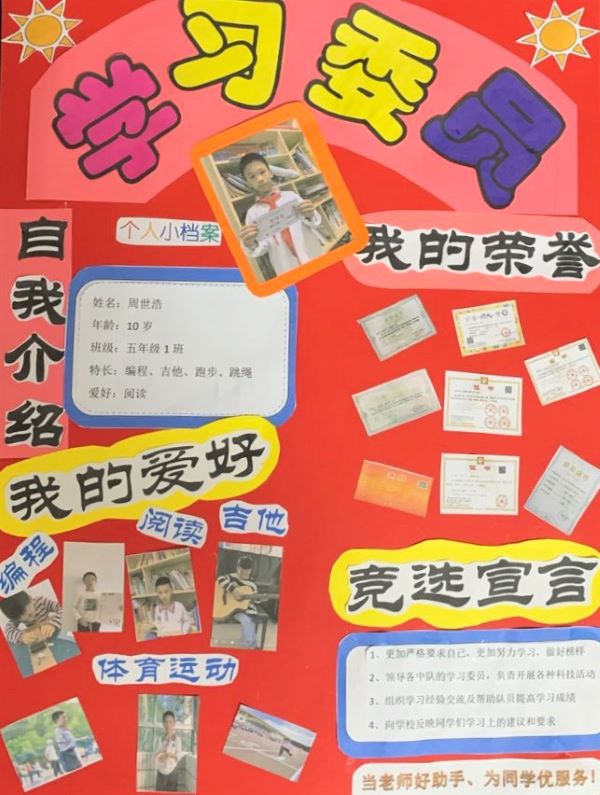 学习委员
个人小档案
自我介绍
姓名：周世浩
年龄：10 岁
班级：五年级 1 班
特长：编程、吉他、跑步、跳绳
爱好：阅读
我的荣誉
证书
证书
证书
我的爱好
编程
阅读
吉他
体育运动
竞选宣言
1、更加严格要求自己，更加努力学习、做好榜样
2、领导各中队的学习委员，负责开展各种科技活动
3、组织学习经验交流及帮助队员提高学习成绩
4、向学校反映同学们学习上的建议和要求
当老师好助手、为同学优服务！